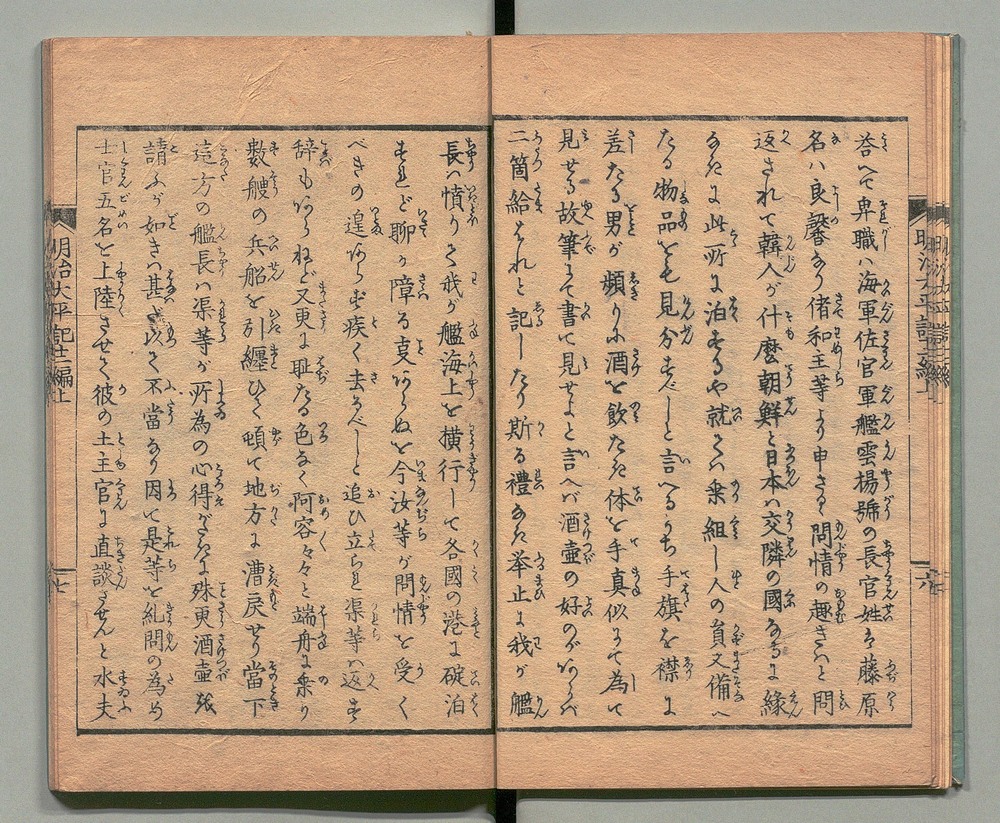 荅へて卑職ハ海軍佐官軍艦雲揚號の長官姓は藤原
名ハ良馨なり偖和主等より申さる問情の趣きハと問
返されて韓人が什麼朝鮮と日本ハ交隣の國なるに緣
なたに此所に泊するや就てハ乗組し人の員又備へ
たる物品をも見分すべしと言へるうち手旗を襟に
差たる男が頻りに酒を飲たき体を手真似にて為て
見せる故筆にて書て見せよと言へバ酒壺の好のがあらバ
二箇給はれと記したり斯る禮なき举止に我が艦
長ハ憤りて我が艦海上を横行して各國の港に碇泊
すれど聊か障る事あらぬを今汝等が問情を受く
べきの遑あらず疾く去るべしと追ひ立られ渠等ハ返す
辞もあらねど又更に耻たる色なく阿容々々と端舟に乗り
數艘の兵船を引纏ひて頓て地方に漕戻せり當下
這方の艦長ハ渠等が所為の心得がたきに殊更酒壺抔
請ふが如きハ甚だ以て不當なり因て是等を糺問の為め
士官五名を上陸させて彼の土主官に直談させんと水夫
明治太平記十二編上
七
六